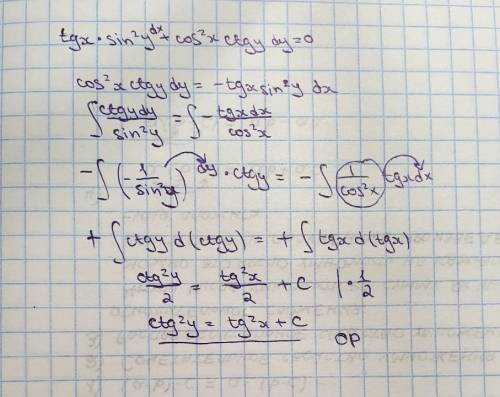 tgx · sin²y dx + cos²x ctgy dy = 0
cos²x ctgy dy = -tgx sin²y dx
∫ ctgy dy / sin²y = ∫ - tgx dx / cos²x
- ∫ (- 1 / sin²y) dy · ctgy = - ∫ (1 / cos²x) tgx dx
+ ∫ ctgy d(ctgy) = + ∫ tgx d(tgx)
ctg²y / 2 = tg²x / 2 + C | · 1/2
ctg²y = tg²x + C
ОР